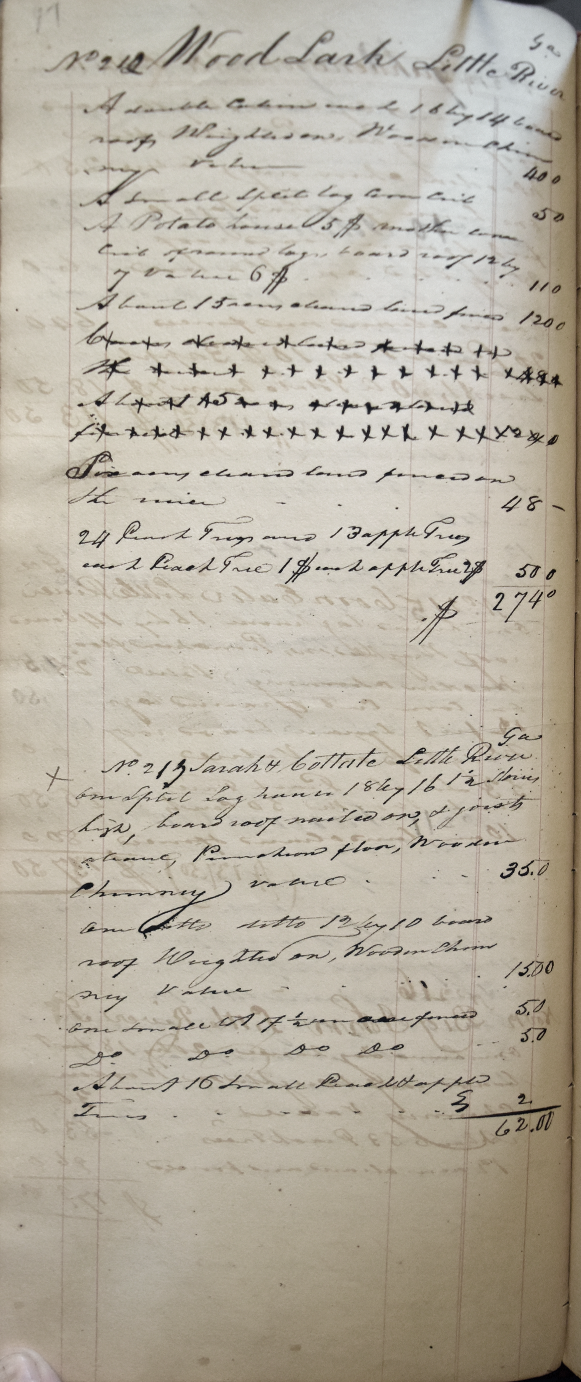 17
Ga
No 212 Wood Lark Little River
A double Cabin made 16 by 14 board
roof Weighted on, Wooden Chim
ney Value 400
A Small Split log Corn Crib 50
A Potato house 5$ another corn
crib of round logs board roof 12 by
7 Value 6$ 110
About 15 acres cleared land fenced 1200
Six acres cleared land fenced on
the river 48 -
24 Peach Trees and 13 apple Trees
each Peach Tree 1$ each apple Tree 2$ 500
$ 2740
Ga
x No. 213 Sarah & Little River
one Split Log house 18 by 16 1½ Stories
high, board roof nailed on, & joists
above, Puncheon floor, Wooden
Chimney value 35.0
one ditto ditto 12 by 10 board
roof Weighted on, Wooden Chim
ney Value 15.00
one small lot of ½ an acre fenced 5.0
Do Do Do Do 5.0
About 16 Small Peach & apple
Trees 2
62.00